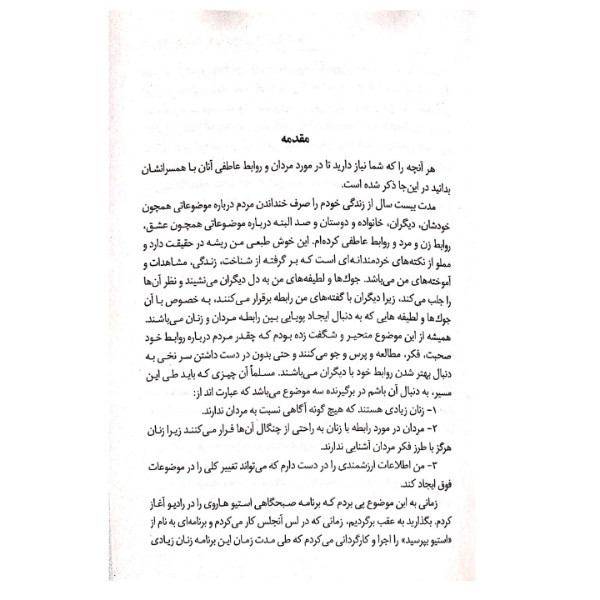 مقدمه
هر آنچه را که شما نیاز دارید تا در مورد مردان و روابط عاطفی آنان با همسرانشان
بدانید در این‌جا ذکر شده است.
مدت بیست سال از زندگی خودم را صرف خنداندن مردم درباره موضوعاتی همچون
خودشان، دیگران، خانواده و دوستان و صد البته درباره موضوعاتی همچون عشق،
روابط زن و مرد و روابط عاطفی کرده‌ام. این خوش طبعی من ریشه در حقیقت دارد و
مملو از نکته‌های خردمندانه‌ای است که بر گرفته از شناخت، زندگی، مشاهدات و
آموخته‌های من می‌باشد. جوك‌ها و لطیفه‌های من به دل دیگران می‌نشیند و نظر آن‌ها
را جلب می‌کند، زیرا دیگران با گفته‌های من رابطه برقرار می‌کنند، به خصوص با آن
جوك‌ها و لطیفه هایی که به دنبال ایجاد پویایی بین رابطه مردان و زنان می‌باشند.
همیشه از این موضوع متحیر و شگفت زده بودم که چقدر مردم درباره روابط خود
صحبت، فکر، مطالعه و پرس و جو می‌کنند و حتی بدون در دست داشتن سر نخی به
دنبال بهتر شدن روابط خود با دیگران می‌باشند. مسلماً آن چیزی که باید طی این
مسیر، به دنبال آن باشم در برگیرنده سه موضوع می‌باشد که عبارت اند از:
۱- زنان زیادی هستند که هیچ گونه آگاهی نسبت به مردان ندارند.
۲- مردان در مورد رابطه با زنان به راحتی از چنگال آن‌ها فرار می‌کنند زیرا زنان
هرگز با طرز فکر مردان آشنایی ندارند.
۳- من اطلاعات ارزشمندی را در دست دارم که می‌تواند تغییر کلی را در موضوعات
فوق ایجاد کند.
زمانی به این موضوع پی بردم که برنامه صبحگاهی استیو هاروی را در رادیو آغاز
کردم. بگذارید به عقب برگردیم، زمانی که در لس آنجلس کار می‌کردم و برنامه‌ای به نام از
«استیو بپرسید» را اجرا و کارگردانی می‌کردم که طی مدت زمان این برنامه زنان زیادی